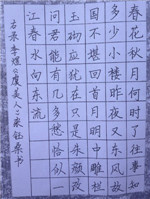 春花秋月何时了往事知
多少小楼昨夜又东风故
国不堪回首月明中雕栏
玉砌应犹在只是朱颜改
问君能有几多愁恰似一
江春水向东流
李煜《虞美人》书